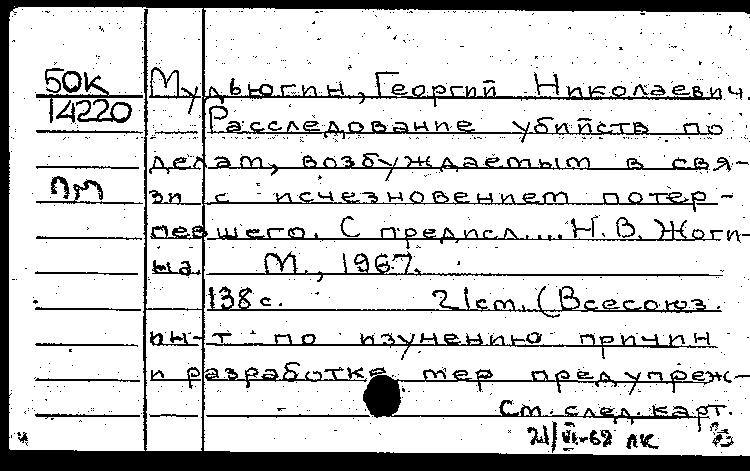 50К
14220
Мудьюгин, Георгий Николаевич.
Расследование убийств по
делам, возбуждаемым в свя-
ПМ
зи с исчезновением потер-
певшего. С предисл.... Н. В. Жоги-
на. М., 1967.
138 с. 21 см. (Всесоюз.
ин-т по изучению причин
и разработке мер предупреж-
См. след. карт.
21/VI-68 ЛК